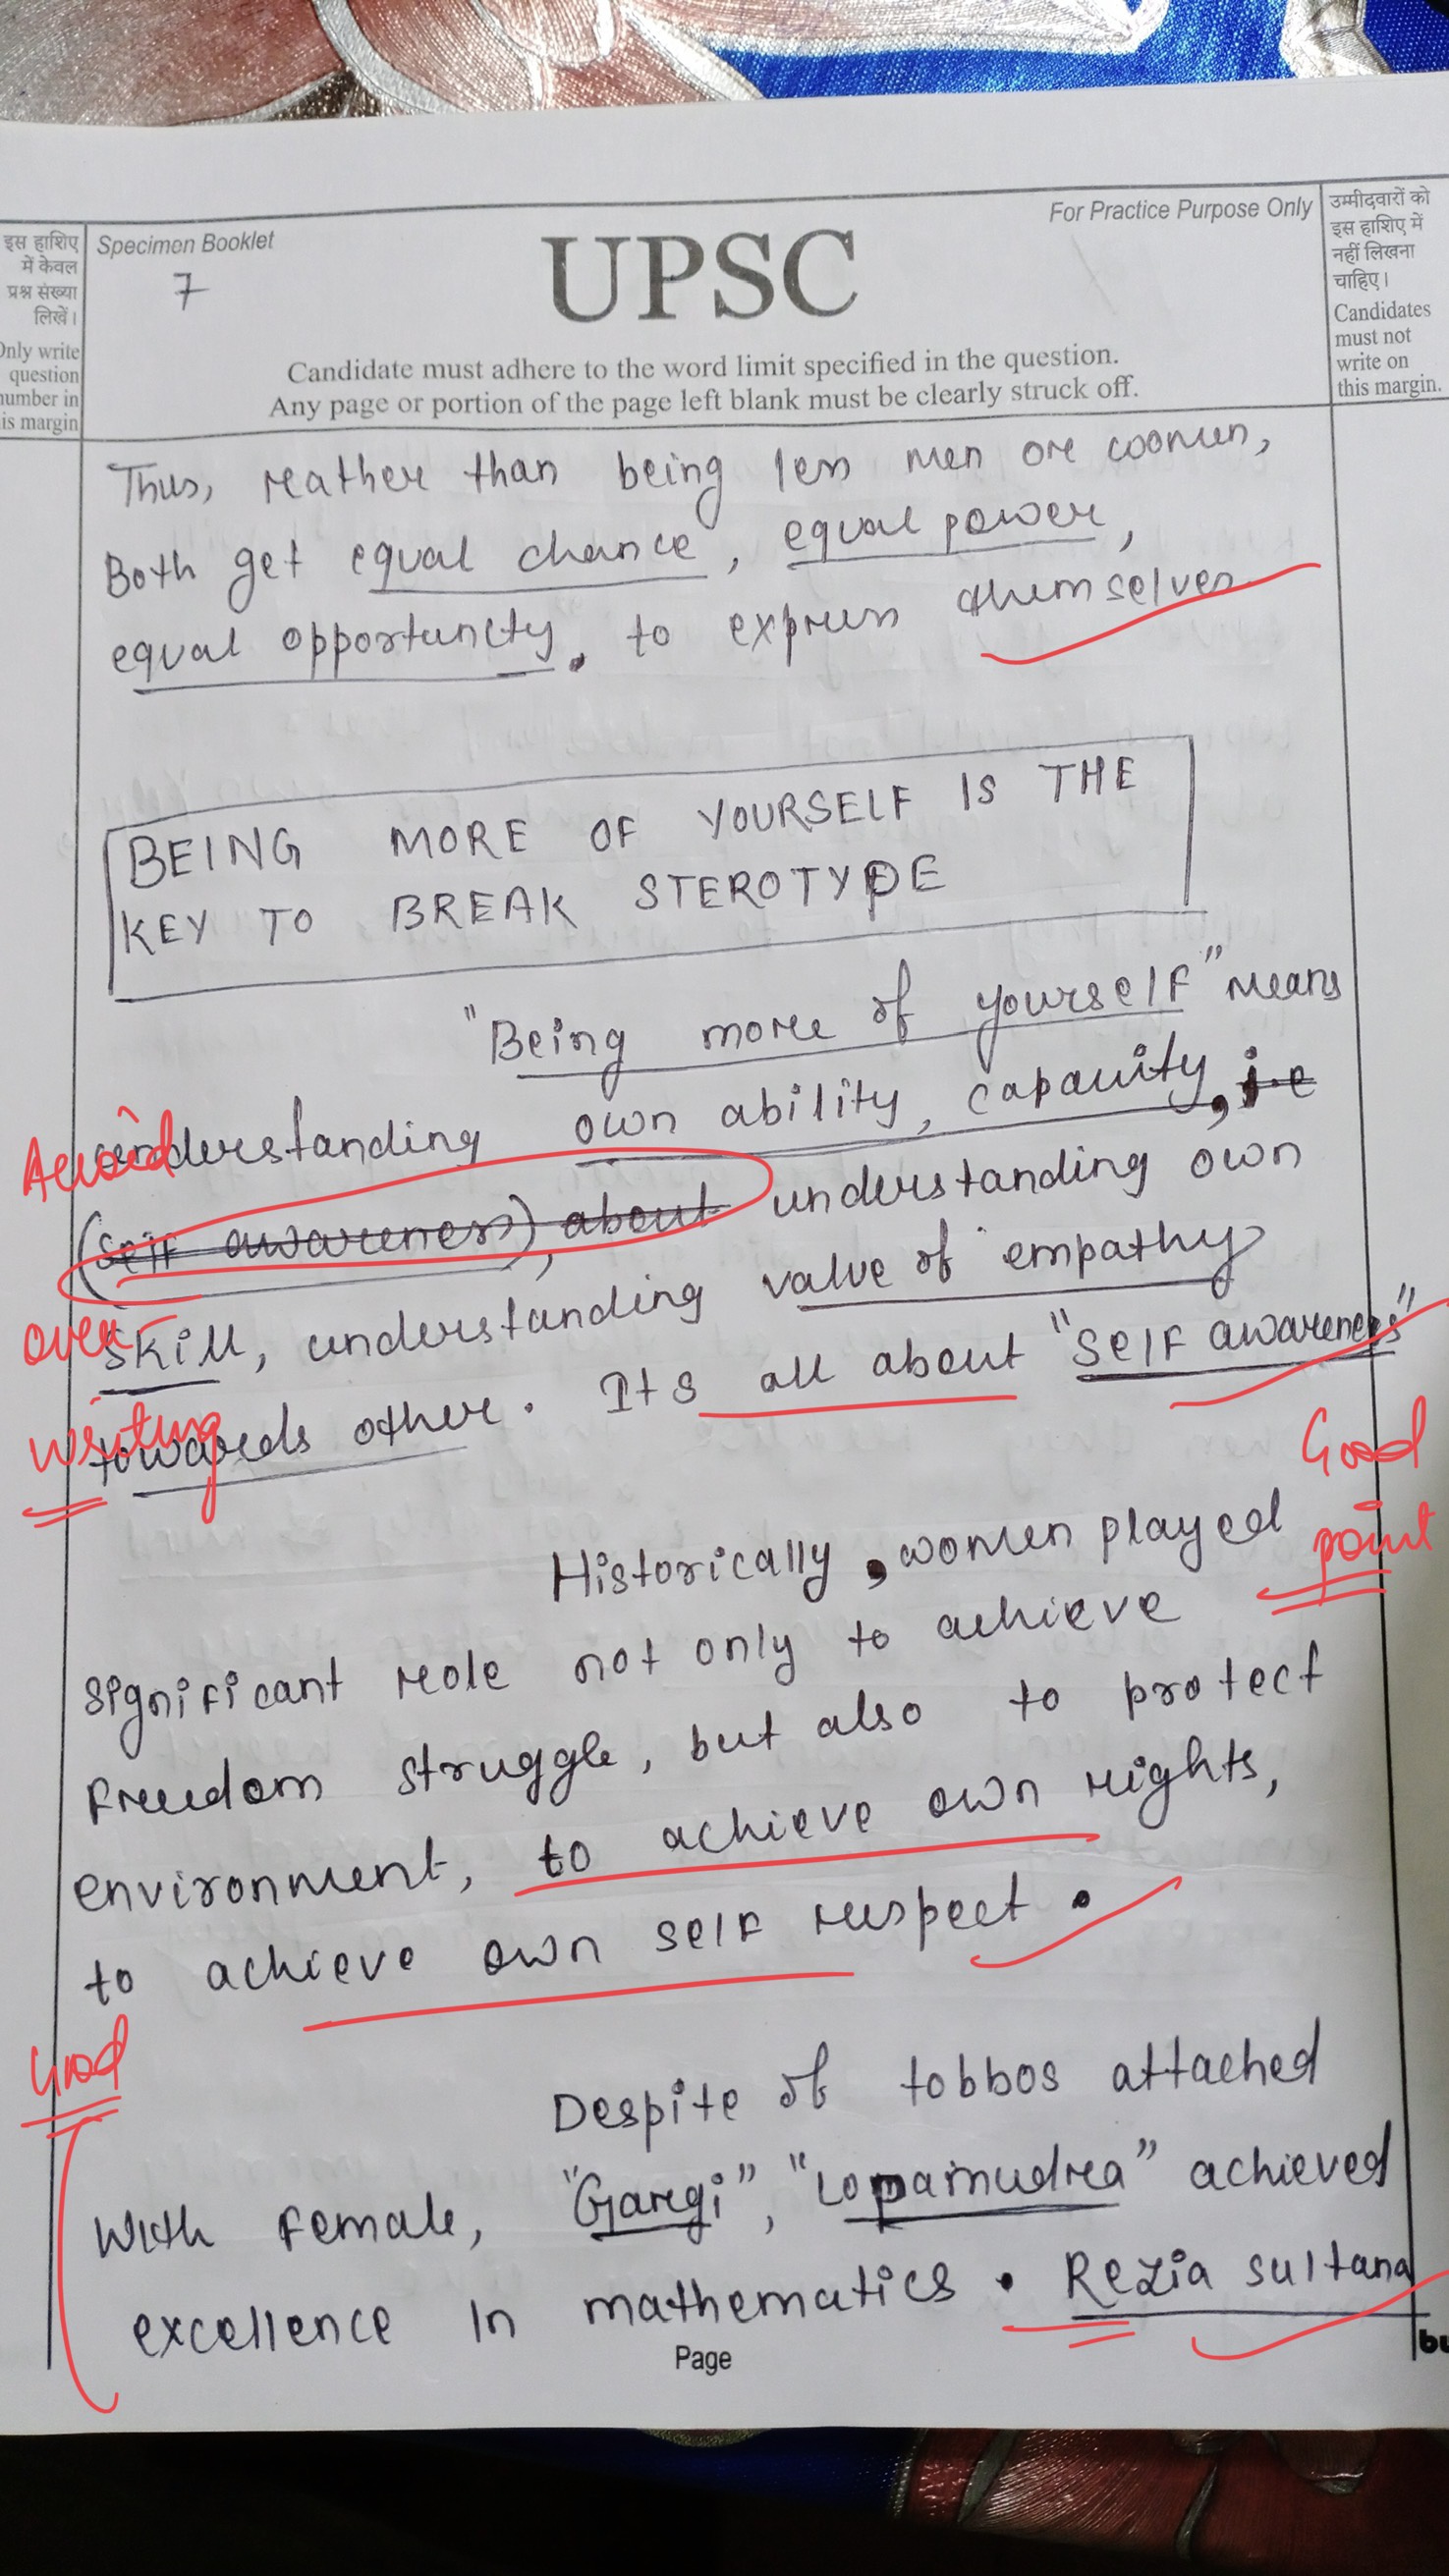 इस हाशिए
में केवल
प्रश्न संख्या
लिखें।
Only write
question
number in
is margin
Specimen Booklet
7
UPSC
For Practice Purpose Only
Candidate must adhere to the word limit specified in the question.
Any page or portion of the page left blank must be clearly struck off.
उम्मीदवारों को
इस हाशिए में
नहीं लिखना
चाहिए।
Candidates
must not
write on
this margin.
Thus, rather than being less men or women,
Both get equal chance, equal power,
equal opportunity. to express themselves
BEING MORE OF YOURSELF IS THE
KEY TO BREAK STEROTYPE
"Being more of yourself" means
understanding own ability, capacity, i.e
(self awareness), about understanding own
skill, understanding value of empathy
towards other. Its all about "self awareness"
Avoid
over
writing
Good
point
Historically, women played
significant role not only to achieve
freedom struggle, but also to protect
environment, to achieve own rights,
to achieve own self respect.
Good
Despite of tobbos attached
with female, "Gargi", "Lopamudra" achieved
excellence in mathematics. Rezia sultana
Page